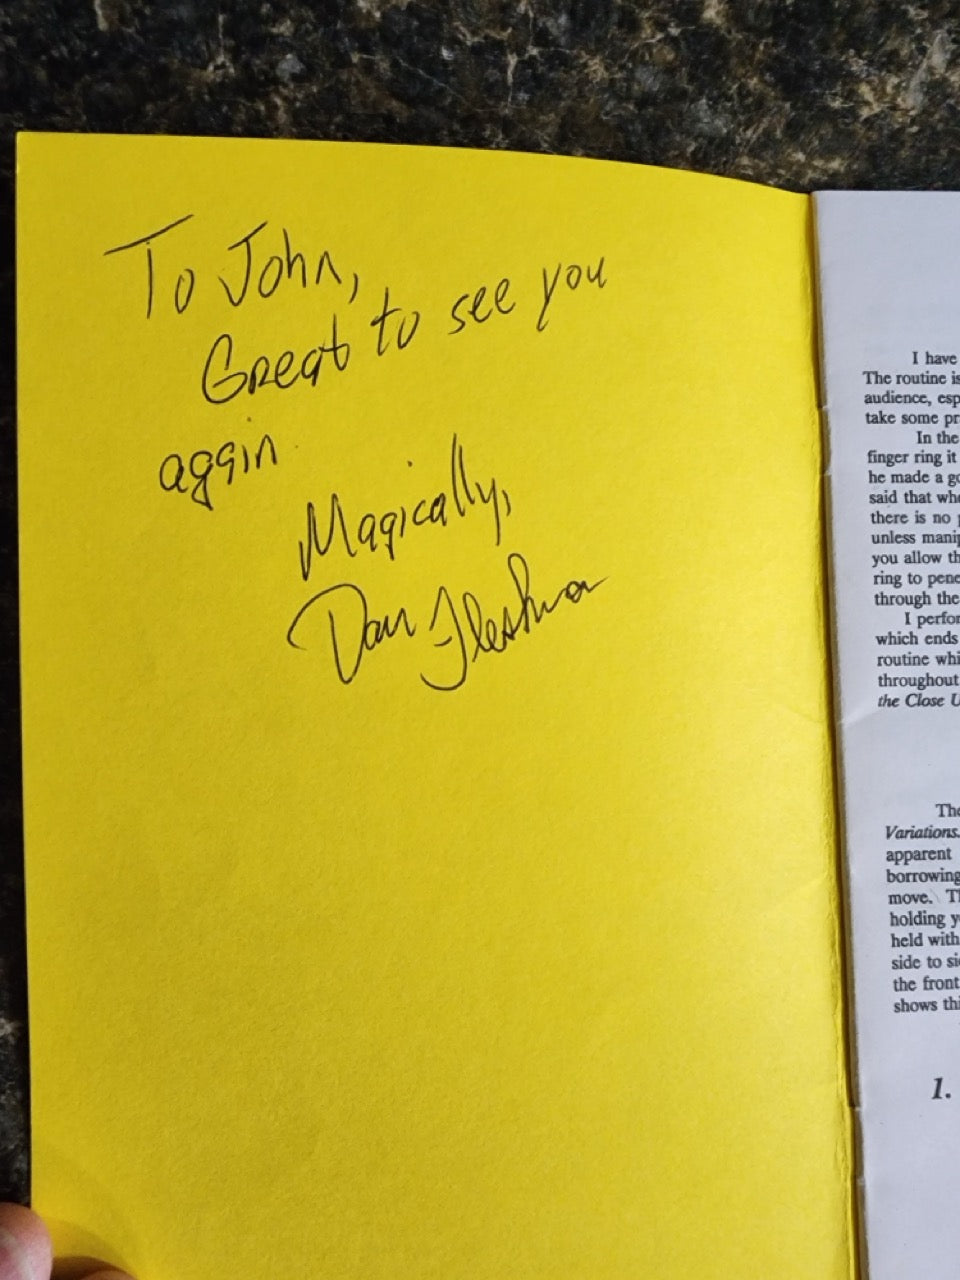 To John,
Great to see you
again
Magically,
Dan Fleshman
I have
The routine is
audience, esp
take some pr
In the
finger ring it
he made a go
said that whe
there is no p
unless manip
you allow th
ring to pene
through the
I perfor
which ends
routine whi
throughout
the Close U
The
Variations.
apparent
borrowing
move. Th
holding y
held with
side to si
the front
shows thi
1.